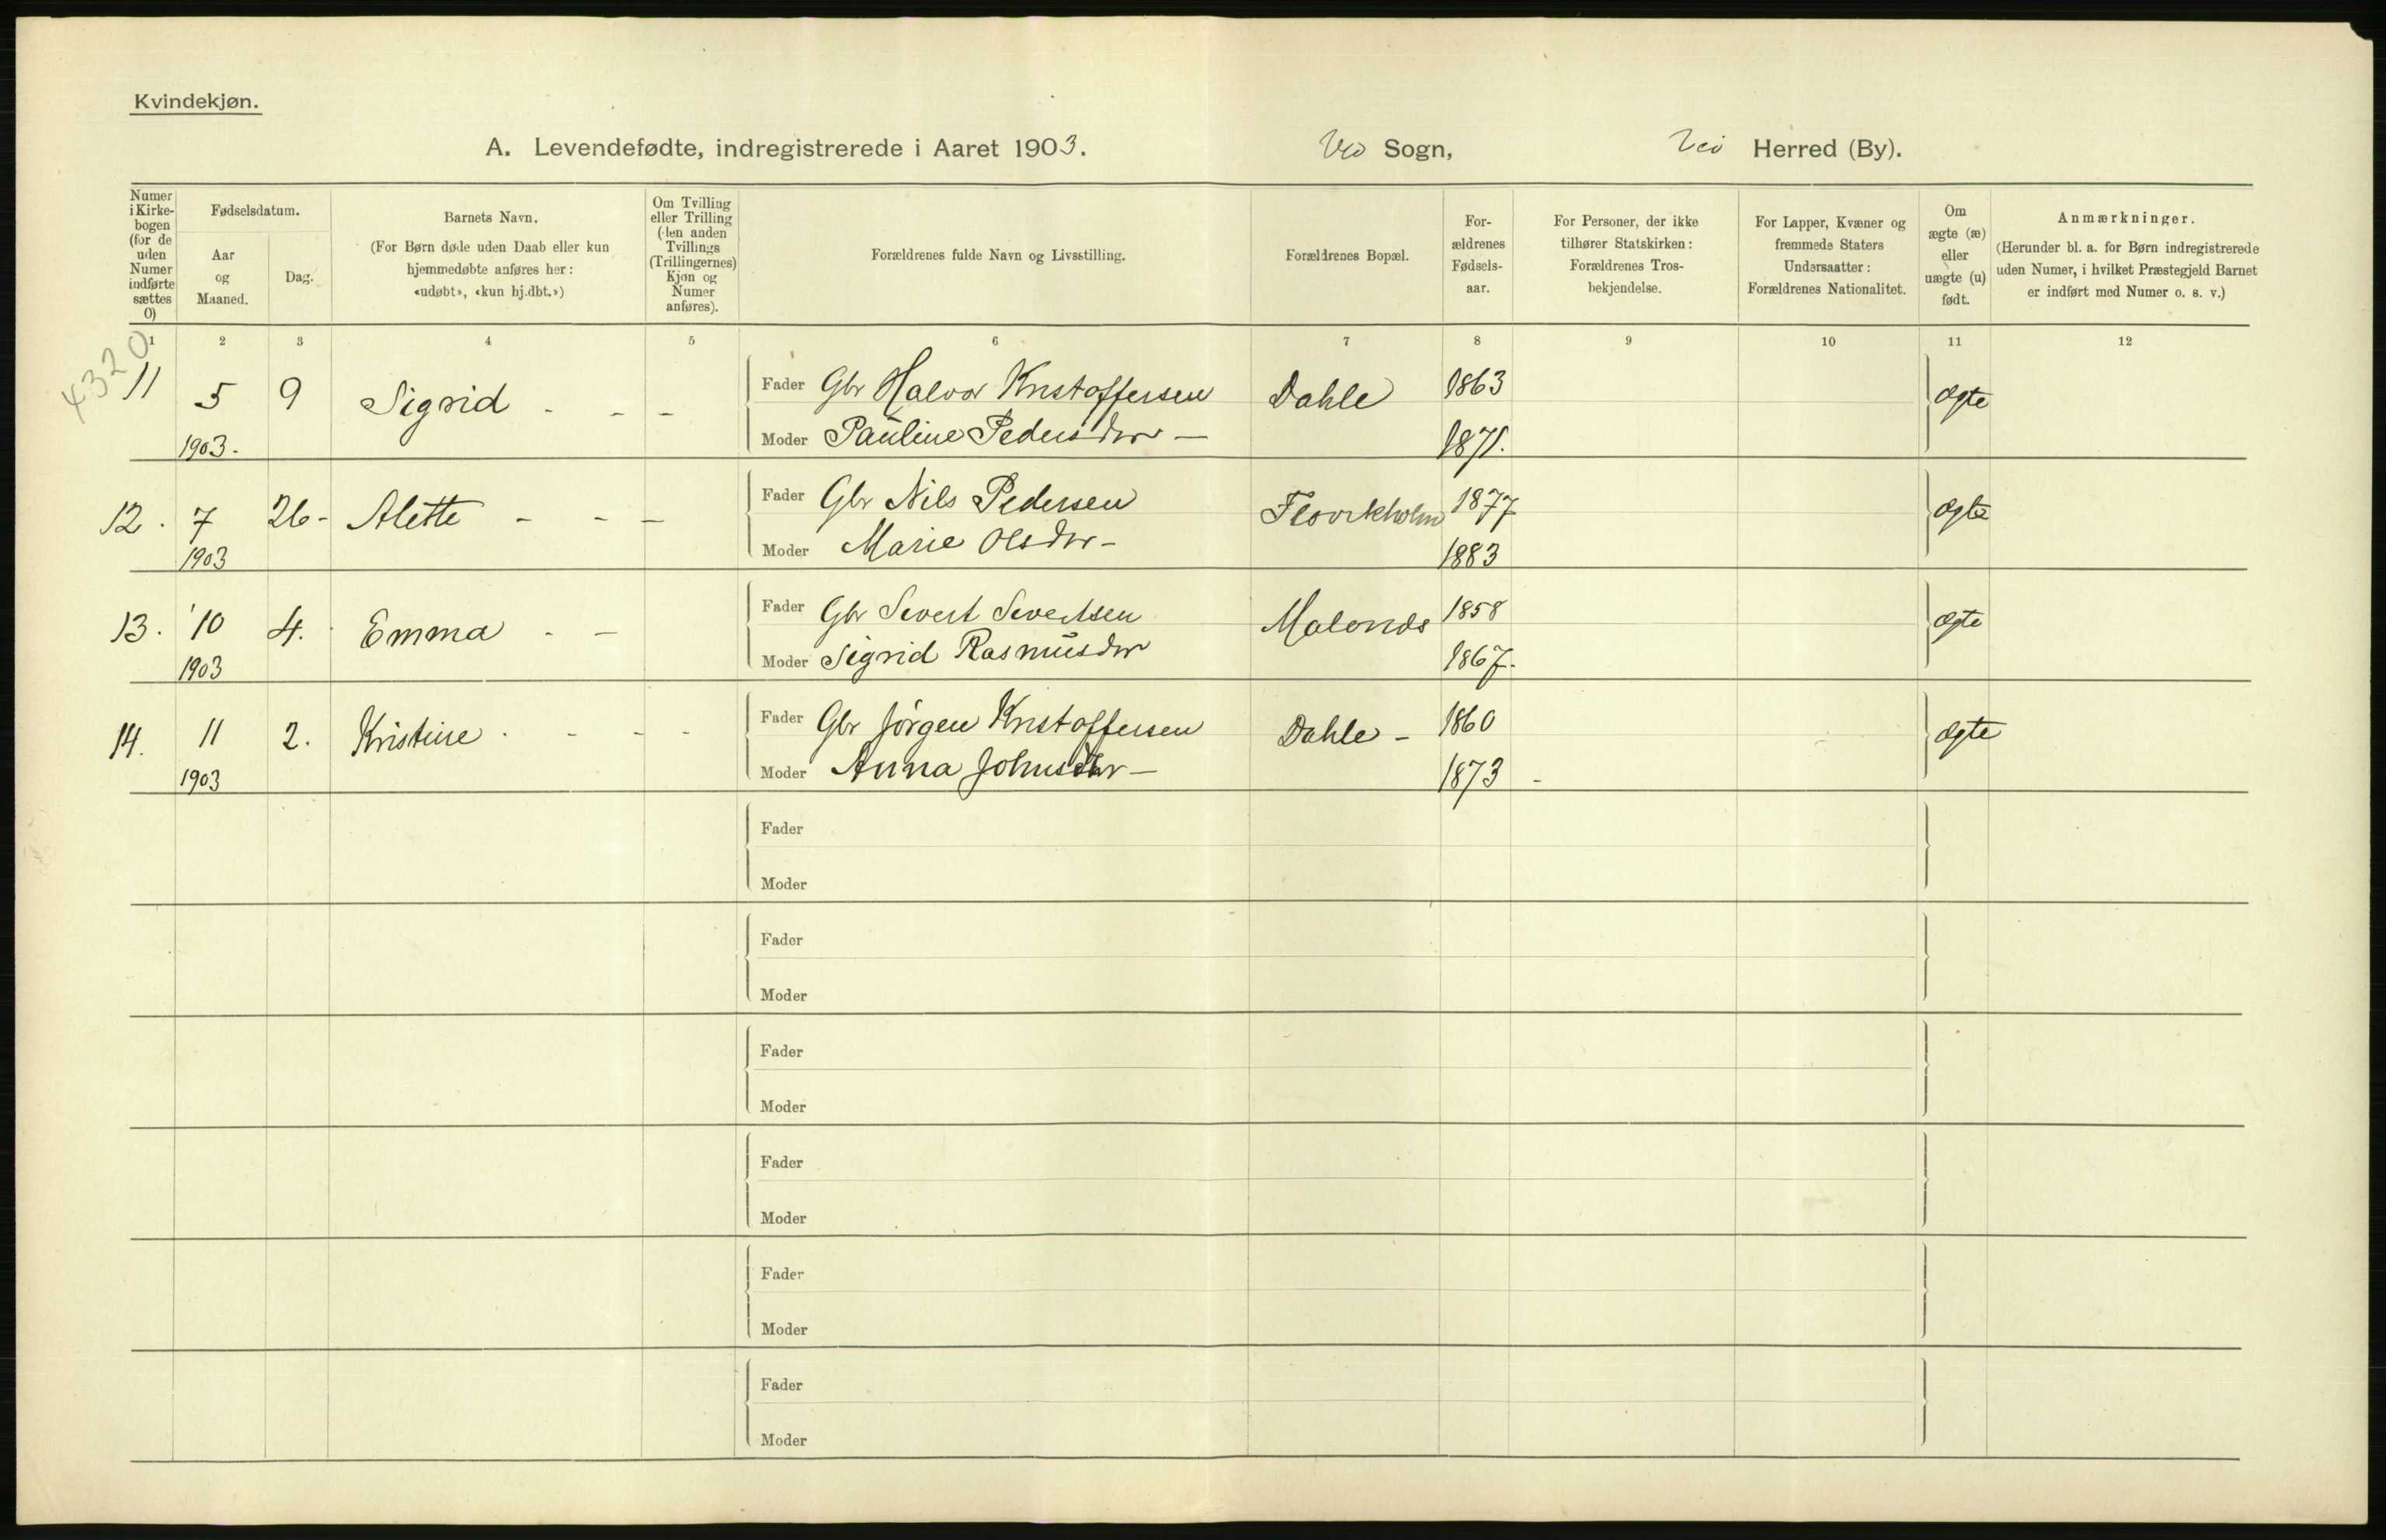 Kvindekjøn.
A. Levendefødte, indregistrerede i Aaret 1903. Veø Sogn, Veø Herred (By).
Numer i Kirkebogen (for de uden Numer indførte sættes 0)
Fødselsdatum.
Aar og Maaned.
Dag.
Barnets Navn.
(For Børn døde uden Daab eller kun
hjemmedøbte anføres her:
«udøbt», «kun hj.dbt.»)
Om Tvilling
eller Trilling
(den anden
Tvillings
(Trillingernes)
Kjøn og
Numer
anføres).
Forældrenes fulde Navn og Livsstilling.
Forældrenes Bopæl.
For-
ældrenes
Fødsels-
aar.
For Personer, der ikke
tilhører Statskirken:
Forældrenes Tros-
bekjendelse.
For Lapper, Kvæner og
fremmede Staters
Undersaatter:
Forældrenes Nationalitet.
Om
ægte (æ)
eller
uægte (u)
født.
Anmærkninger.
(Herunder bl. a. for Børn indregistrerede
uden Numer, i hvilket Præstegjeld Barnet
er indført med Numer o. s. v.)
1 2 3 4 5 6 7 8 9 10 11 12
4320
11 5 9 Sigrid - - - Fader Gbr Halvor Kristoffersen Dahle 1863 ægte
1903. Moder Pauline Pedersdtr — 1871.
12. 7 26- Alette - - - Fader Gbr Nils Pedersen Flovikholm 1877 ægte
1903 Moder Marie Olsdtr- 1883
13. 10 4. Emma - - Fader Gbr Sivert Sivertsen 1858 ægte
1903 Moder Sigrid Rasmusdtr 1867.
14. 11 2. Kristine - - - - Fader Gbr Jörgen Kristoffersen Dahle - 1860 ægte
1903 Moder Anna Johnsdtr — 1873 -
Fader
Moder
Fader
Moder
Fader
Moder
Fader
Moder
Fader
Moder
Fader
Moder